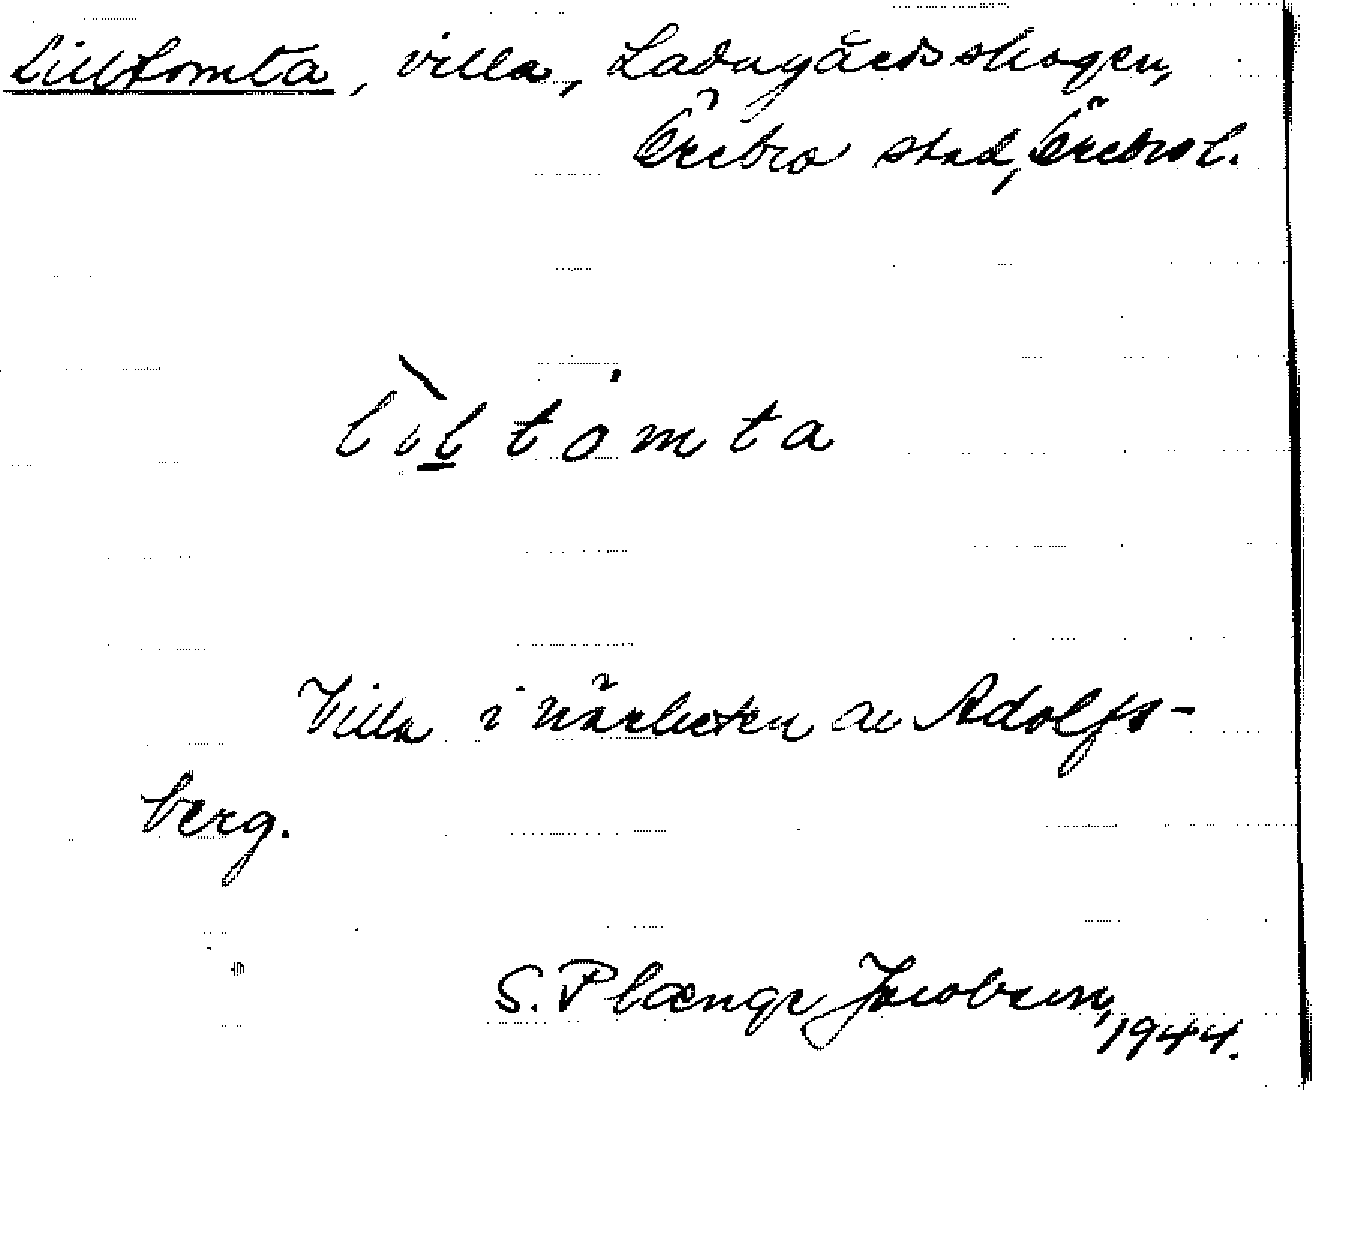 Lilltomta, villa, Ladugårdsskogen,
Örebro stad, Örebro l.
lìl̲tȯmta
Villa i närheten av Adolfs-
berg.
S. Plænge Jacobson,
1944.